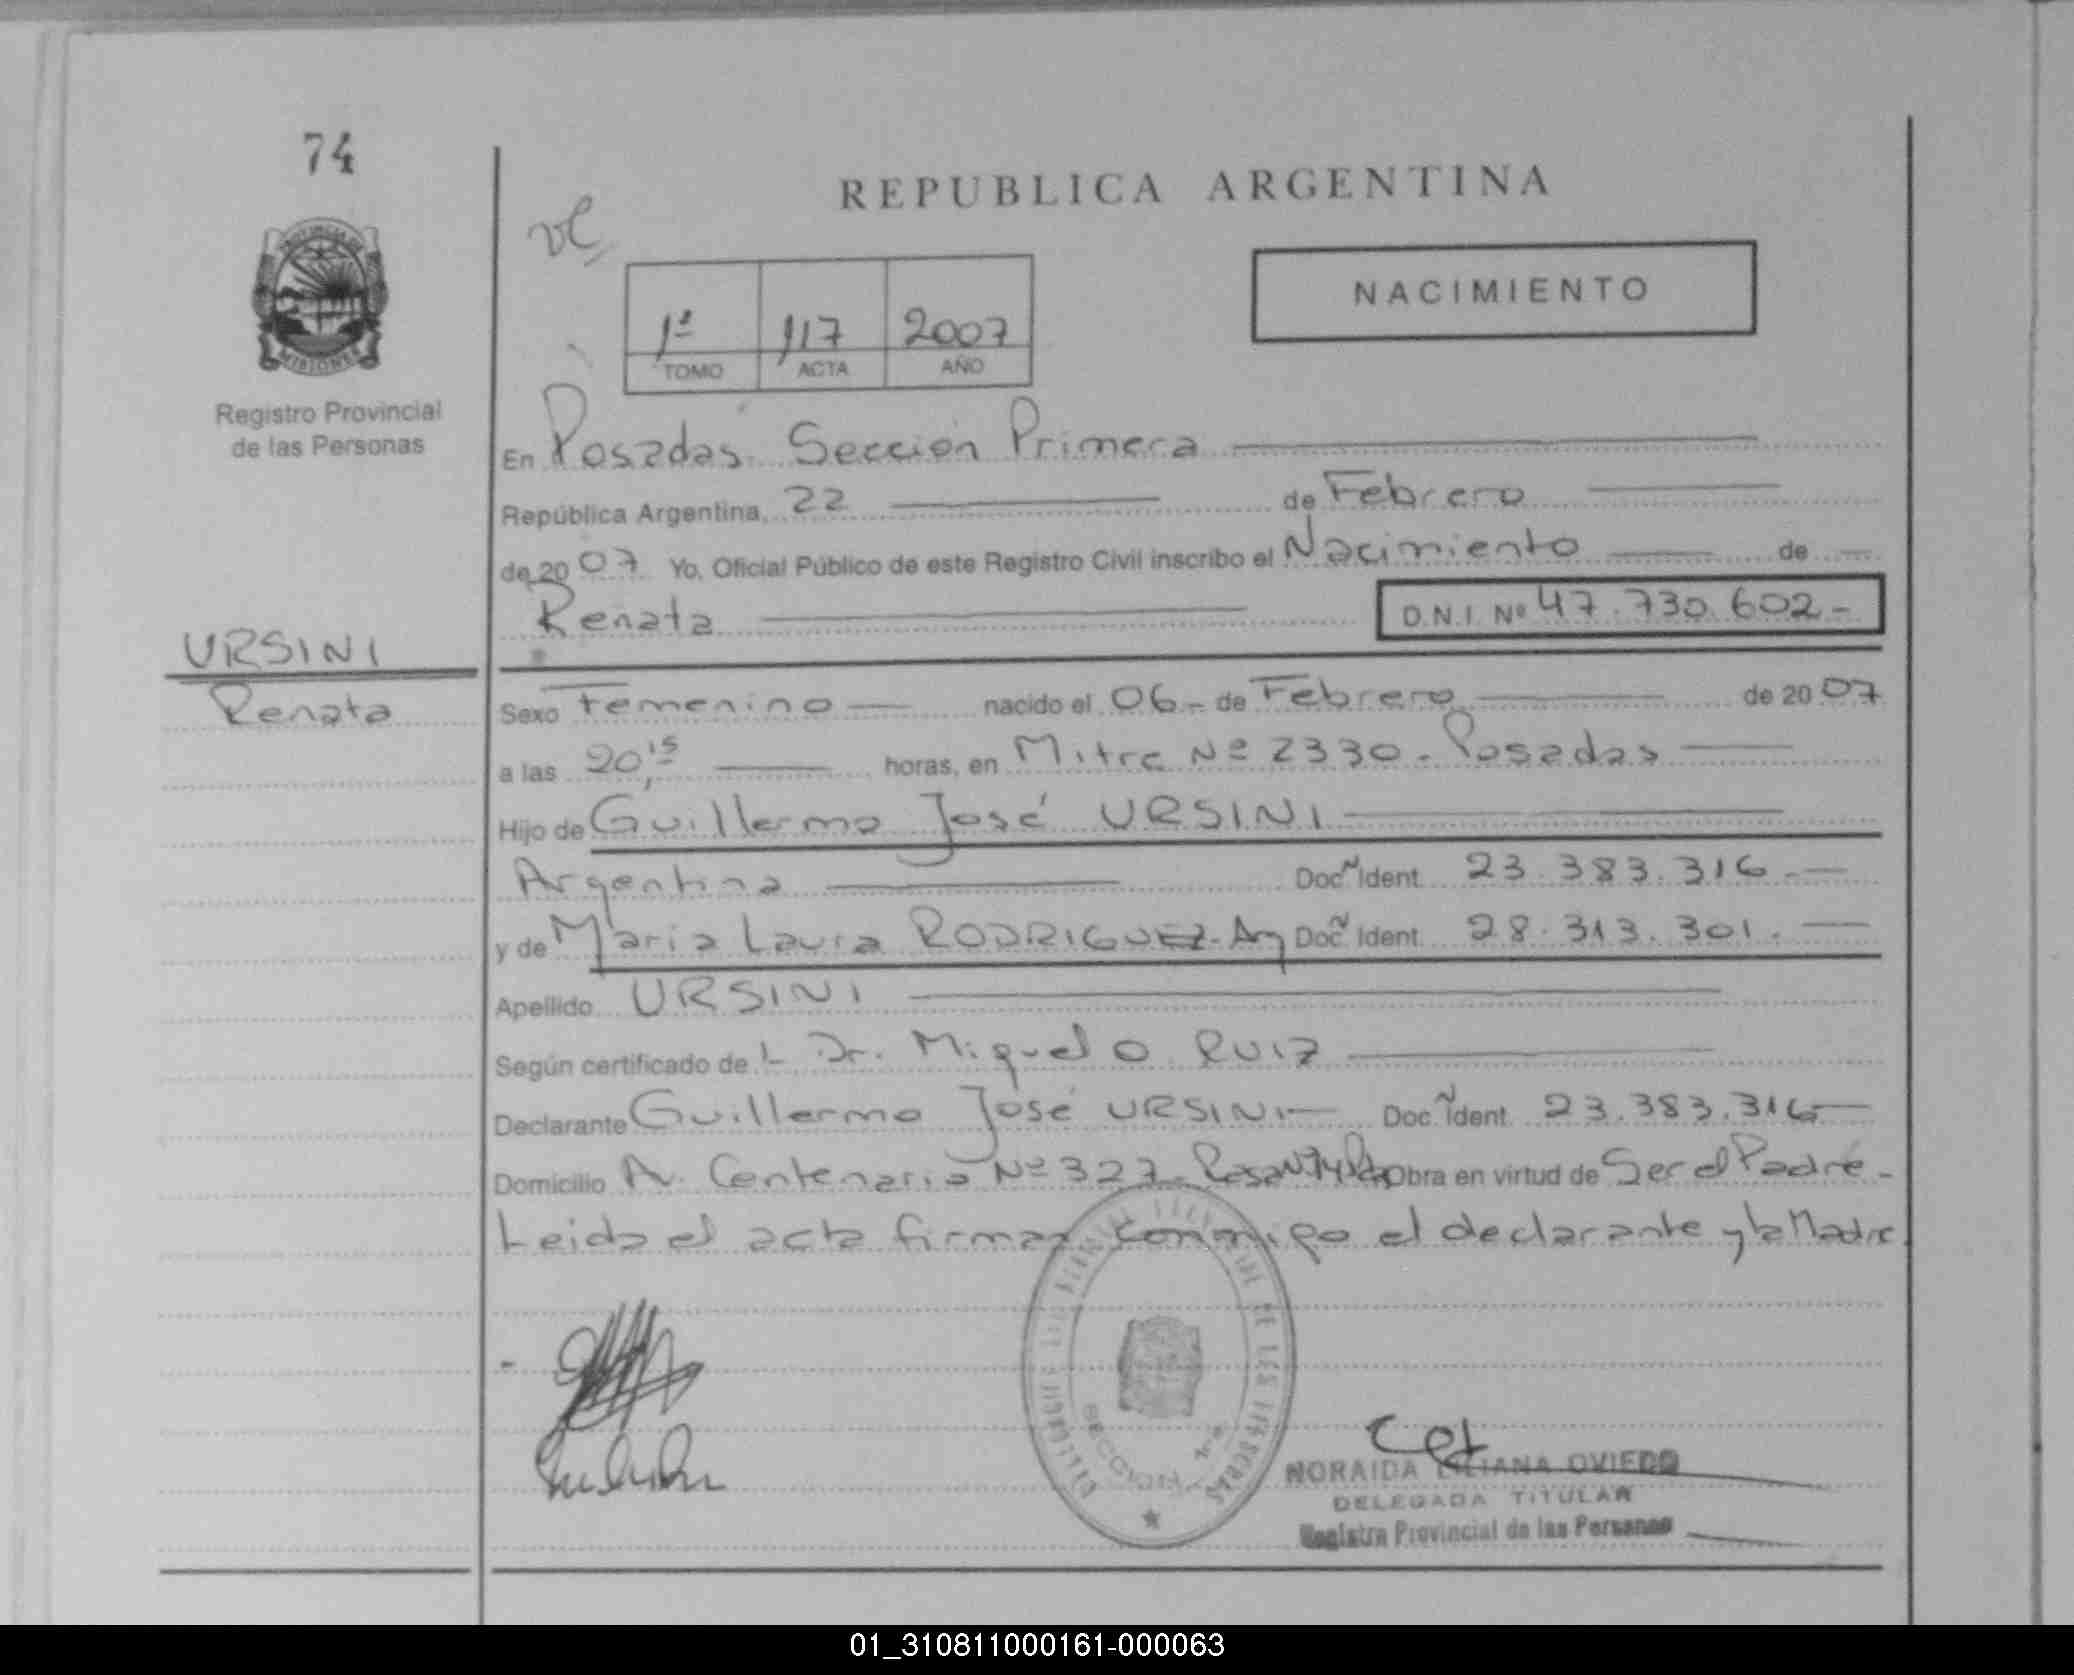 74
REPUBLICA ARGENTINA
1ª 117 2007
TOMO ACTA AÑO
NACIMIENTO
PROVINCIA DE
MISIONES
Registro Provincial
de las Personas
En Posadas Sección Primera
República Argentina, 22 de Febrero
de 2007 Yo, Oficial Público de este Registro Civil inscribo el Nacimiento de
Renata D.N.I. Nº 47.730.602-
URSINI
Renata
Sexo Femenino nacido el 06- de Febrero de 2007
a las 20,15 horas, en Mitre Nº 2330- Posadas
Hijo de Guillermo José URSINI
Argentina Doc Ident. 23.383.316.-
y de Maria Laura RODRIGUEZ- Arg Doc Ident. 28.313.301.
Apellido URSINI
Según certificado de L Dr. Miguel O RUIZ
Declarante Guillermo José URSINI Doc Ident. 23.383.316
Domicilio Av. Centenario Nº 327- Obra en virtud de Ser el Padre-
Leida el acta firman conmigo el declarante y la Madre.
SECCION 1ra
NORAIDA LILIANA OVIEDO
DELEGADA TITULAR
Registro Provincial de las Personas
01_310811000161-000063